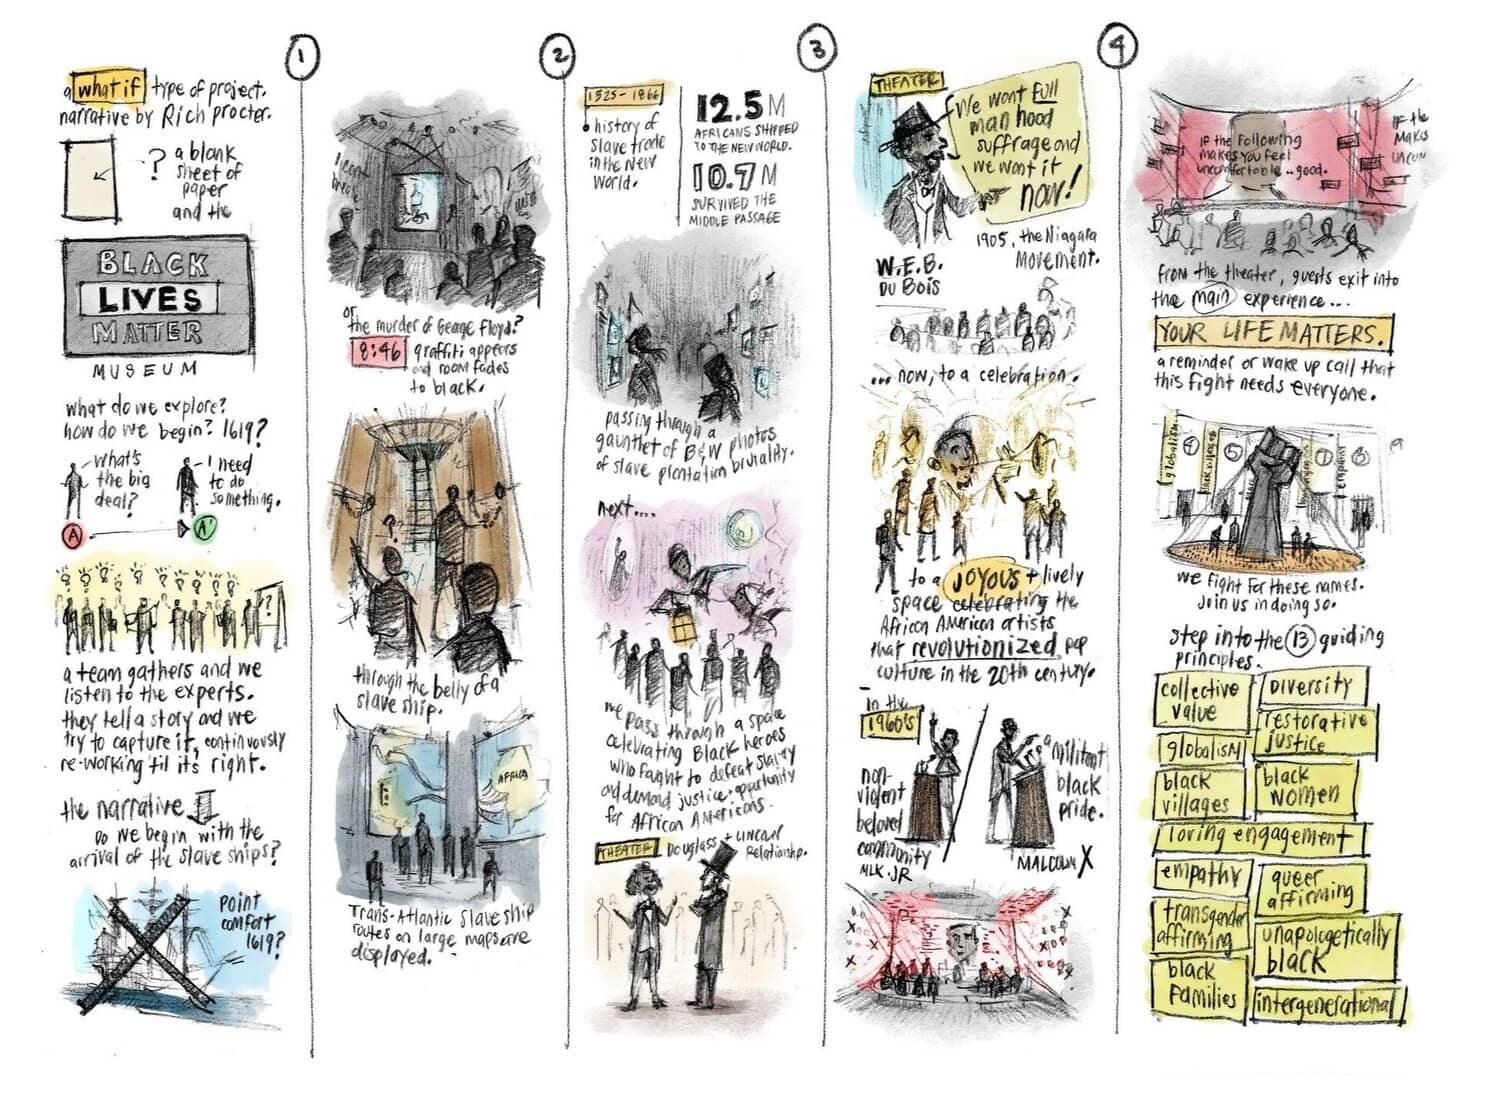 1
2
3
4
a what if type of project.
narrative by Rich procter.
? a blank
sheet of
paper
and the
BLACK
LIVES
MATTER
MUSEUM
what do we explore?
how do we begin? 1619?
what's
the big
deal?
I need
to do
something.
A
A'
?
a team gathers and we
listen to the experts.
they tell a story and we
try to capture it, continuously
re-working 'til it's right.
the narrative
Do we begin with the
arrival of the slave ships?
point
comfort
1619?
I can't
breathe
or
the murder of George Floyd?
8:46 graffiti appears
and room fades
to black.
?
through the belly of a
slave ship.
AFRICA
Trans-Atlantic slave ship
routes on large maps are
displayed.
1525-1866
history of
slave trade
in the New
World.
12.5 M
AFRICANS SHIPPED
TO THE NEW WORLD.
10.7 M
SURVIVED THE
MIDDLE PASSAGE
passing through a
gauntlet of B&W photos
of slave plantation brutality.
next....
we pass through a space
celebrating Black heroes
who fought to defeat slavery
and demand justice + opportunity
for African Americans.
THEATER Douglass + Lincoln
Relationship.
THEATER
We want full
man hood
suffrage and
we want it
now!
1905, the Niagara
Movement.
W.E.B.
DU BOIS
... now, to a celebration.
to a joyous + lively
space celebrating the
African American artists
that revolutionized pop
culture in the 20th century.
in the
1960's
non-
violent
beloved
community
MLK. JR
a militant
black
pride.
MALCOLM X
IF the Following
makes you feel
uncomfortable.. good.
IF the
Makes
uncom
From the theater, guests exit into
the main experience...
YOUR LIFE MATTERS.
a reminder or wake up call that
this fight needs everyone.
globalism
4
5
7
8
empathy
we fight for these names.
Join us in doing so.
step into the 13 guiding
principles.
collective
value
diversity
restorative
justice
globalism
black
villages
black
women
loving engagement
empathy
queer
affirming
transgender
affirming
unapologetically
black
black
Families
intergenerational